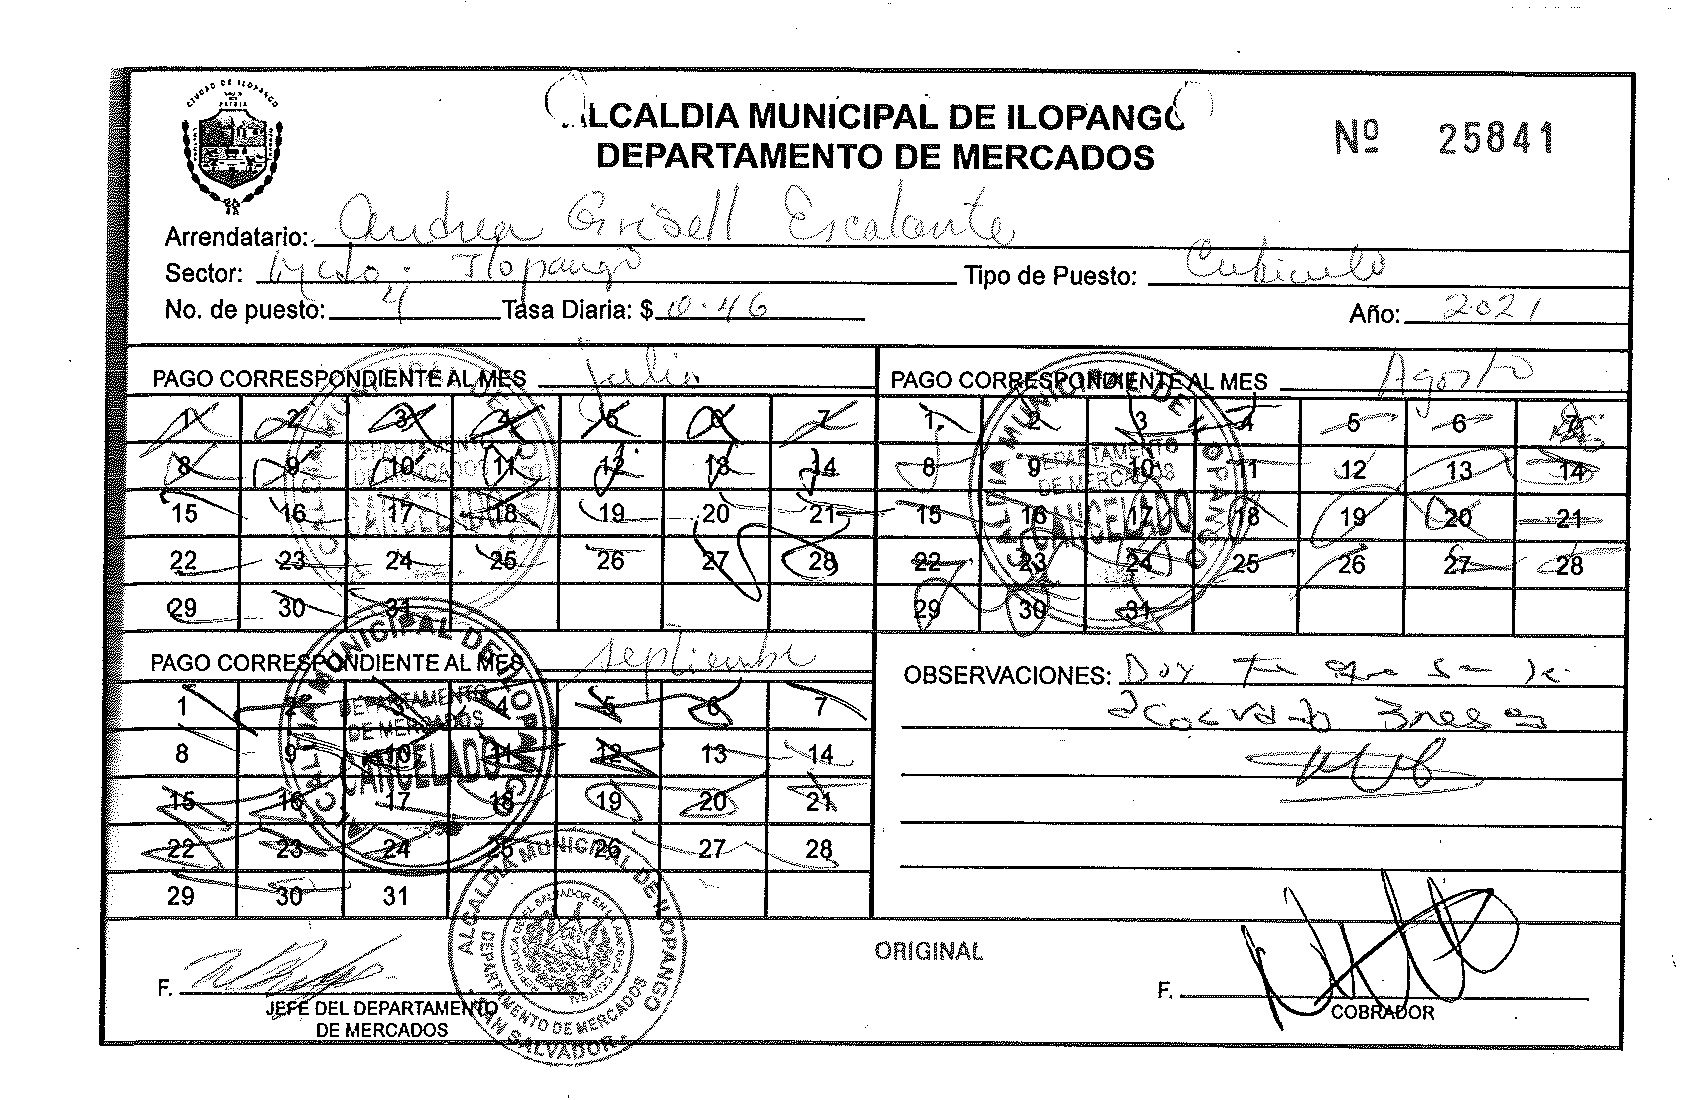 CIUDAD DE ILOPANGO
ALCALDIA MUNICIPAL DE ILOPANGO
Nº 25841
DEPARTAMENTO DE MERCADOS
Arrendatario: Andrea Grisell Escalante
Sector: Mcdo. Ilopango Tipo de Puesto: Cubiculo
No. de puesto: 4 Tasa Diaria: $ 10.46 Año: 2021
PAGO CORRESPONDIENTE AL MES Julio
1 2 3 4 5 6 7
8 9 10 11 12 13 14
15 16 17 18 19 20 21
22 23 24 25 26 27 28
29 30 31
PAGO CORRESPONDIENTE AL MES Agosto
1 2 3 4 5 6 7
8 9 10 11 12 13 14
15 16 17 18 19 20 21
22 23 24 25 26 27 28
29 30 31
ALCALDIA MUNICIPAL DE ILOPANGO
DEPARTAMENTO
DE MERCADOS
CANCELADO
ALCALDIA MUNICIPAL DE ILOPANGO
DEPARTAMENTO
DE MERCADOS
CANCELADO
PAGO CORRESPONDIENTE AL MES septiembre
1 2 3 4 5 6 7
8 9 10 11 12 13 14
15 16 17 18 19 20 21
22 23 24 25 26 27 28
29 30 31
ALCALDIA MUNICIPAL DE ILOPANGO
DEPARTAMENTO
DE MERCADOS
CANCELADO
OBSERVACIONES: Doy fe que se le
F.
JEFE DEL DEPARTAMENTO
DE MERCADOS
ALCALDIA MUNICIPAL DE ILOPANGO
DEPARTAMENTO DE MERCADOS
SAN SALVADOR
ORIGINAL
F.
COBRADOR